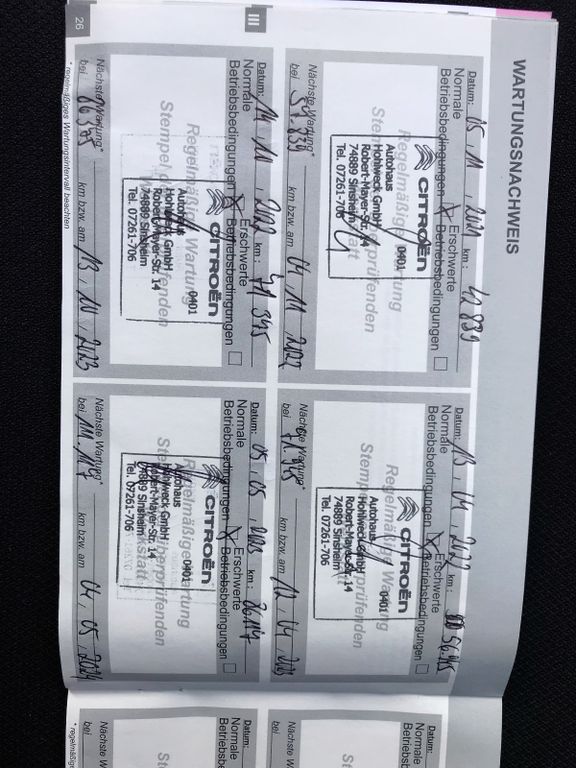 WARTUNGSNACHWEIS
Datum: 05 . 11 . 2021 km: 42 839
Normale Erschwerte
Betriebsbedingungen Betriebsbedingungen
Regelmäßige Wartung
0401
CITROËN
Autohaus
Hohlweck GmbH
Robert-Mayer-Str. 14
74889 Sinsheim
Tel. 07261-706
Nächste Wartung*
bei 57.839 km bzw. am 04 . 11 . 2022
Datum: 13 . 04 . 2022 km:
Normale Erschwerte
Betriebsbedingungen Betriebsbedingungen
Regelmäßige Wartung
0401
CITROËN
Autohaus
Hohlweck GmbH
Robert-Mayer-Str. 14
74889 Sinsheim
Tel. 07261-706
Nächste Wartung*
bei km bzw. am 12 . 04 . 2023
III
Datum: 14 . 11 . 2022 km: 71 395
Normale Erschwerte
Betriebsbedingungen Betriebsbedingungen
Regelmäßige Wartung
0401
CITROËN
Autohaus
Hohlweck GmbH
Robert-Mayer-Str. 14
74889 Sinsheim
Tel. 07261-706
Nächste Wartung*
bei 86 395 km bzw. am 2023
Datum: 05 . 05 . 2023 km:
Normale Erschwerte
Betriebsbedingungen Betriebsbedingungen
Regelmäßige Wartung
0401
CITROËN
Autohaus
Hohlweck GmbH
Robert-Mayer-Str. 14
74889 Sinsheim
Tel. 07261-706
Nächste Wartung*
bei 111.117 km bzw. am 04 . 05 . 2024
26
* regelmäßiges Wartungsintervall beachten
Datum:
Normale
Betriebsbedin
Nächste W
bei
Datum:
Normale
Betriebsbe
Nächste
bei
* regelmäßig